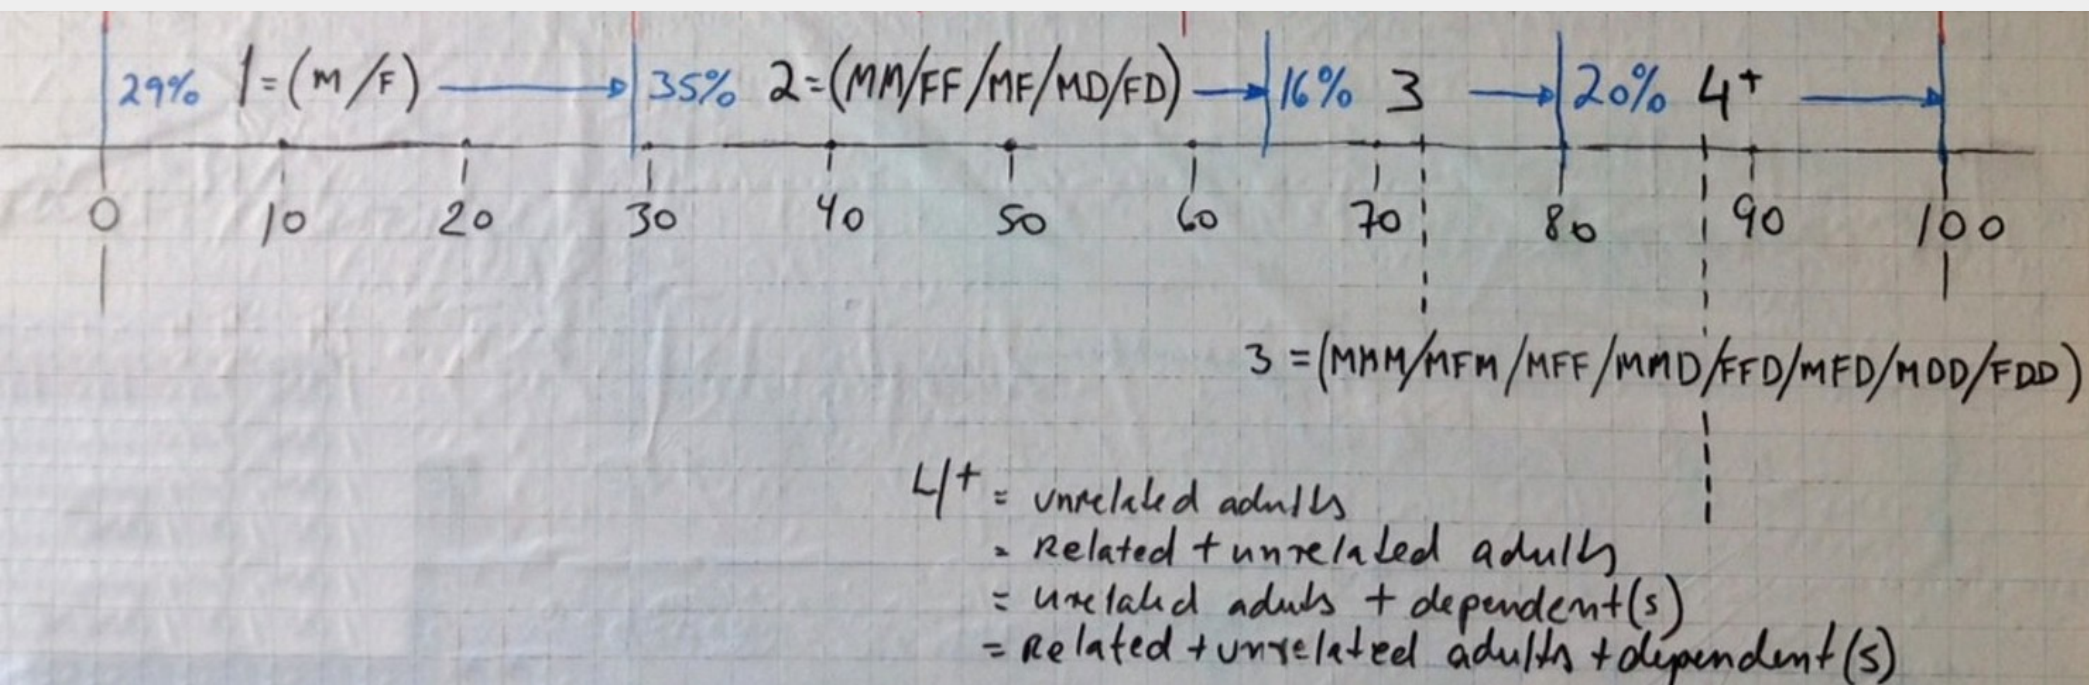 29% 1=(M/F) 35% 2=(MM/FF/MF/MD/FD) 16% 3 20% 4+
0 10 20 30 40 50 60 70 80 90 100
3 =(MMM/MFM/MFF/MMD/FFD/MFD/MDD/FDD)
4+ = unrelated adults
= Related + unrelated adults
= unrelated adults + dependent(s)
= Related + unrelated adults + dependent(s)